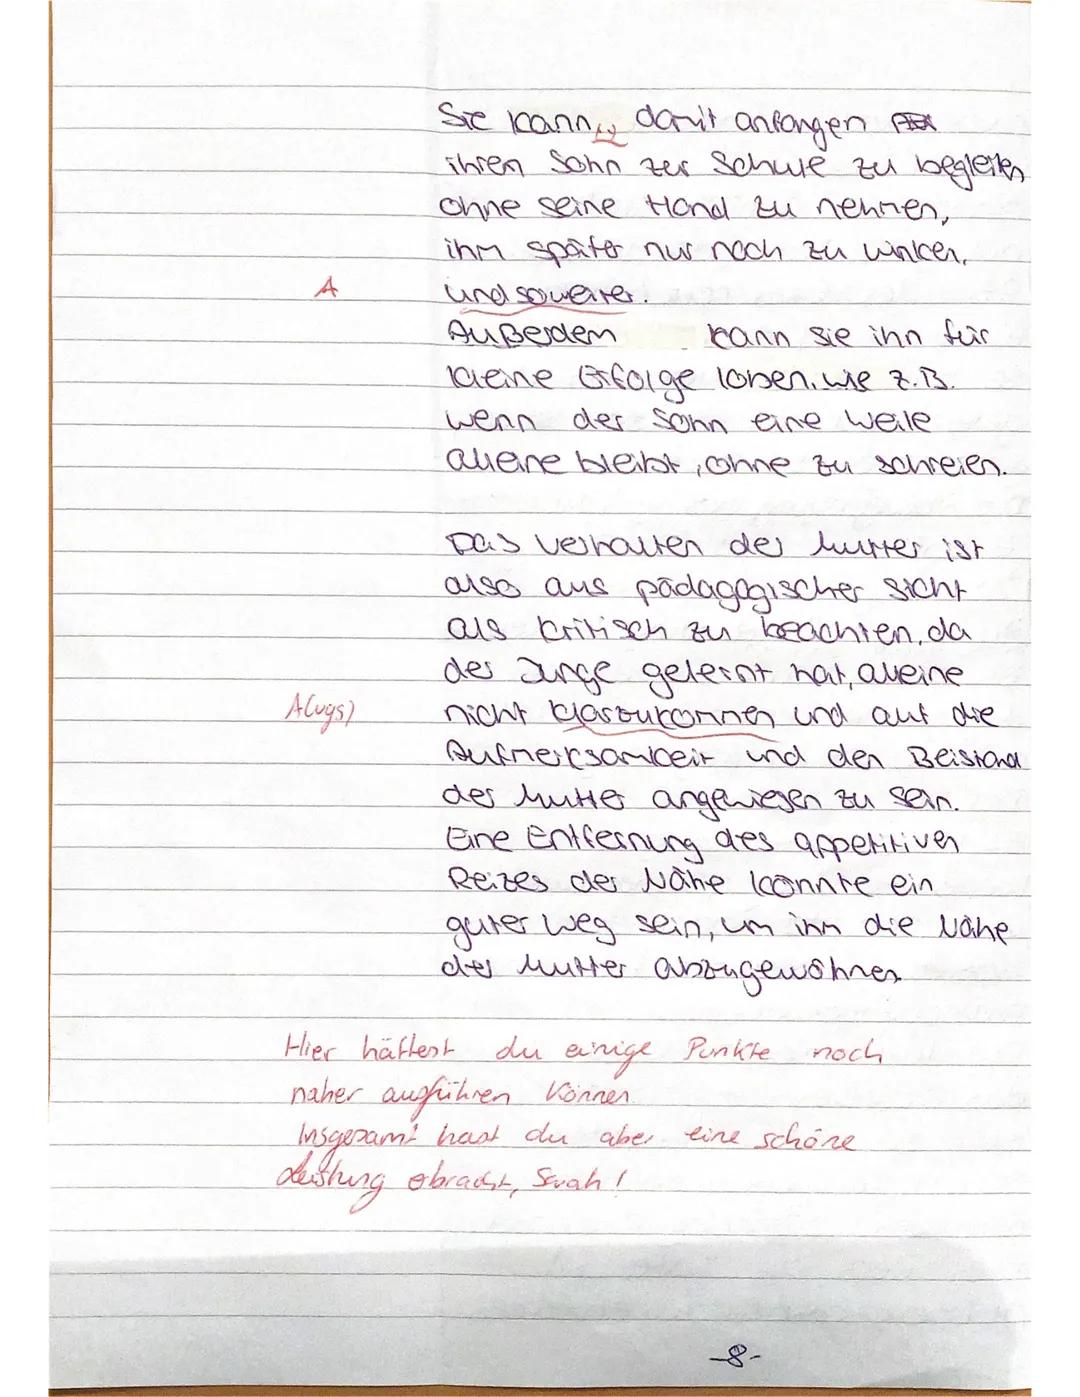 Sie kann, damit anfangen
ihren Sohn zur Schule zu begleiten
ohne seine Hand zu nehmen,
ihm später nur noch zu winken,
A undsoweiter.
Außerdem kann sie ihn für
kleine Erfolge loben, wie z.B.
wenn der Sohn eine Weile
alleine bleibt, ohne zu schreien.
Das Verhalten der Mutter ist
also aus pädagogischer Sicht
als kritisch zu beachten, da
der Junge gelernt hat, alleine
A(ugs) nicht klarzukommen und auf die
Aufmerksamkeit und den Beistand
der Mutter angewiesen zu sein.
Eine Entfernung des appetitiven
Reizes der Nähe könnte ein
guter Weg sein, um ihm die Nähe
der Mutter abzugewöhnen
Hier hättest du einige Punkte noch
näher ausführen können.
Insgesamt hast du aber eine schöne
Leistung erbracht, Sarah!
-8-